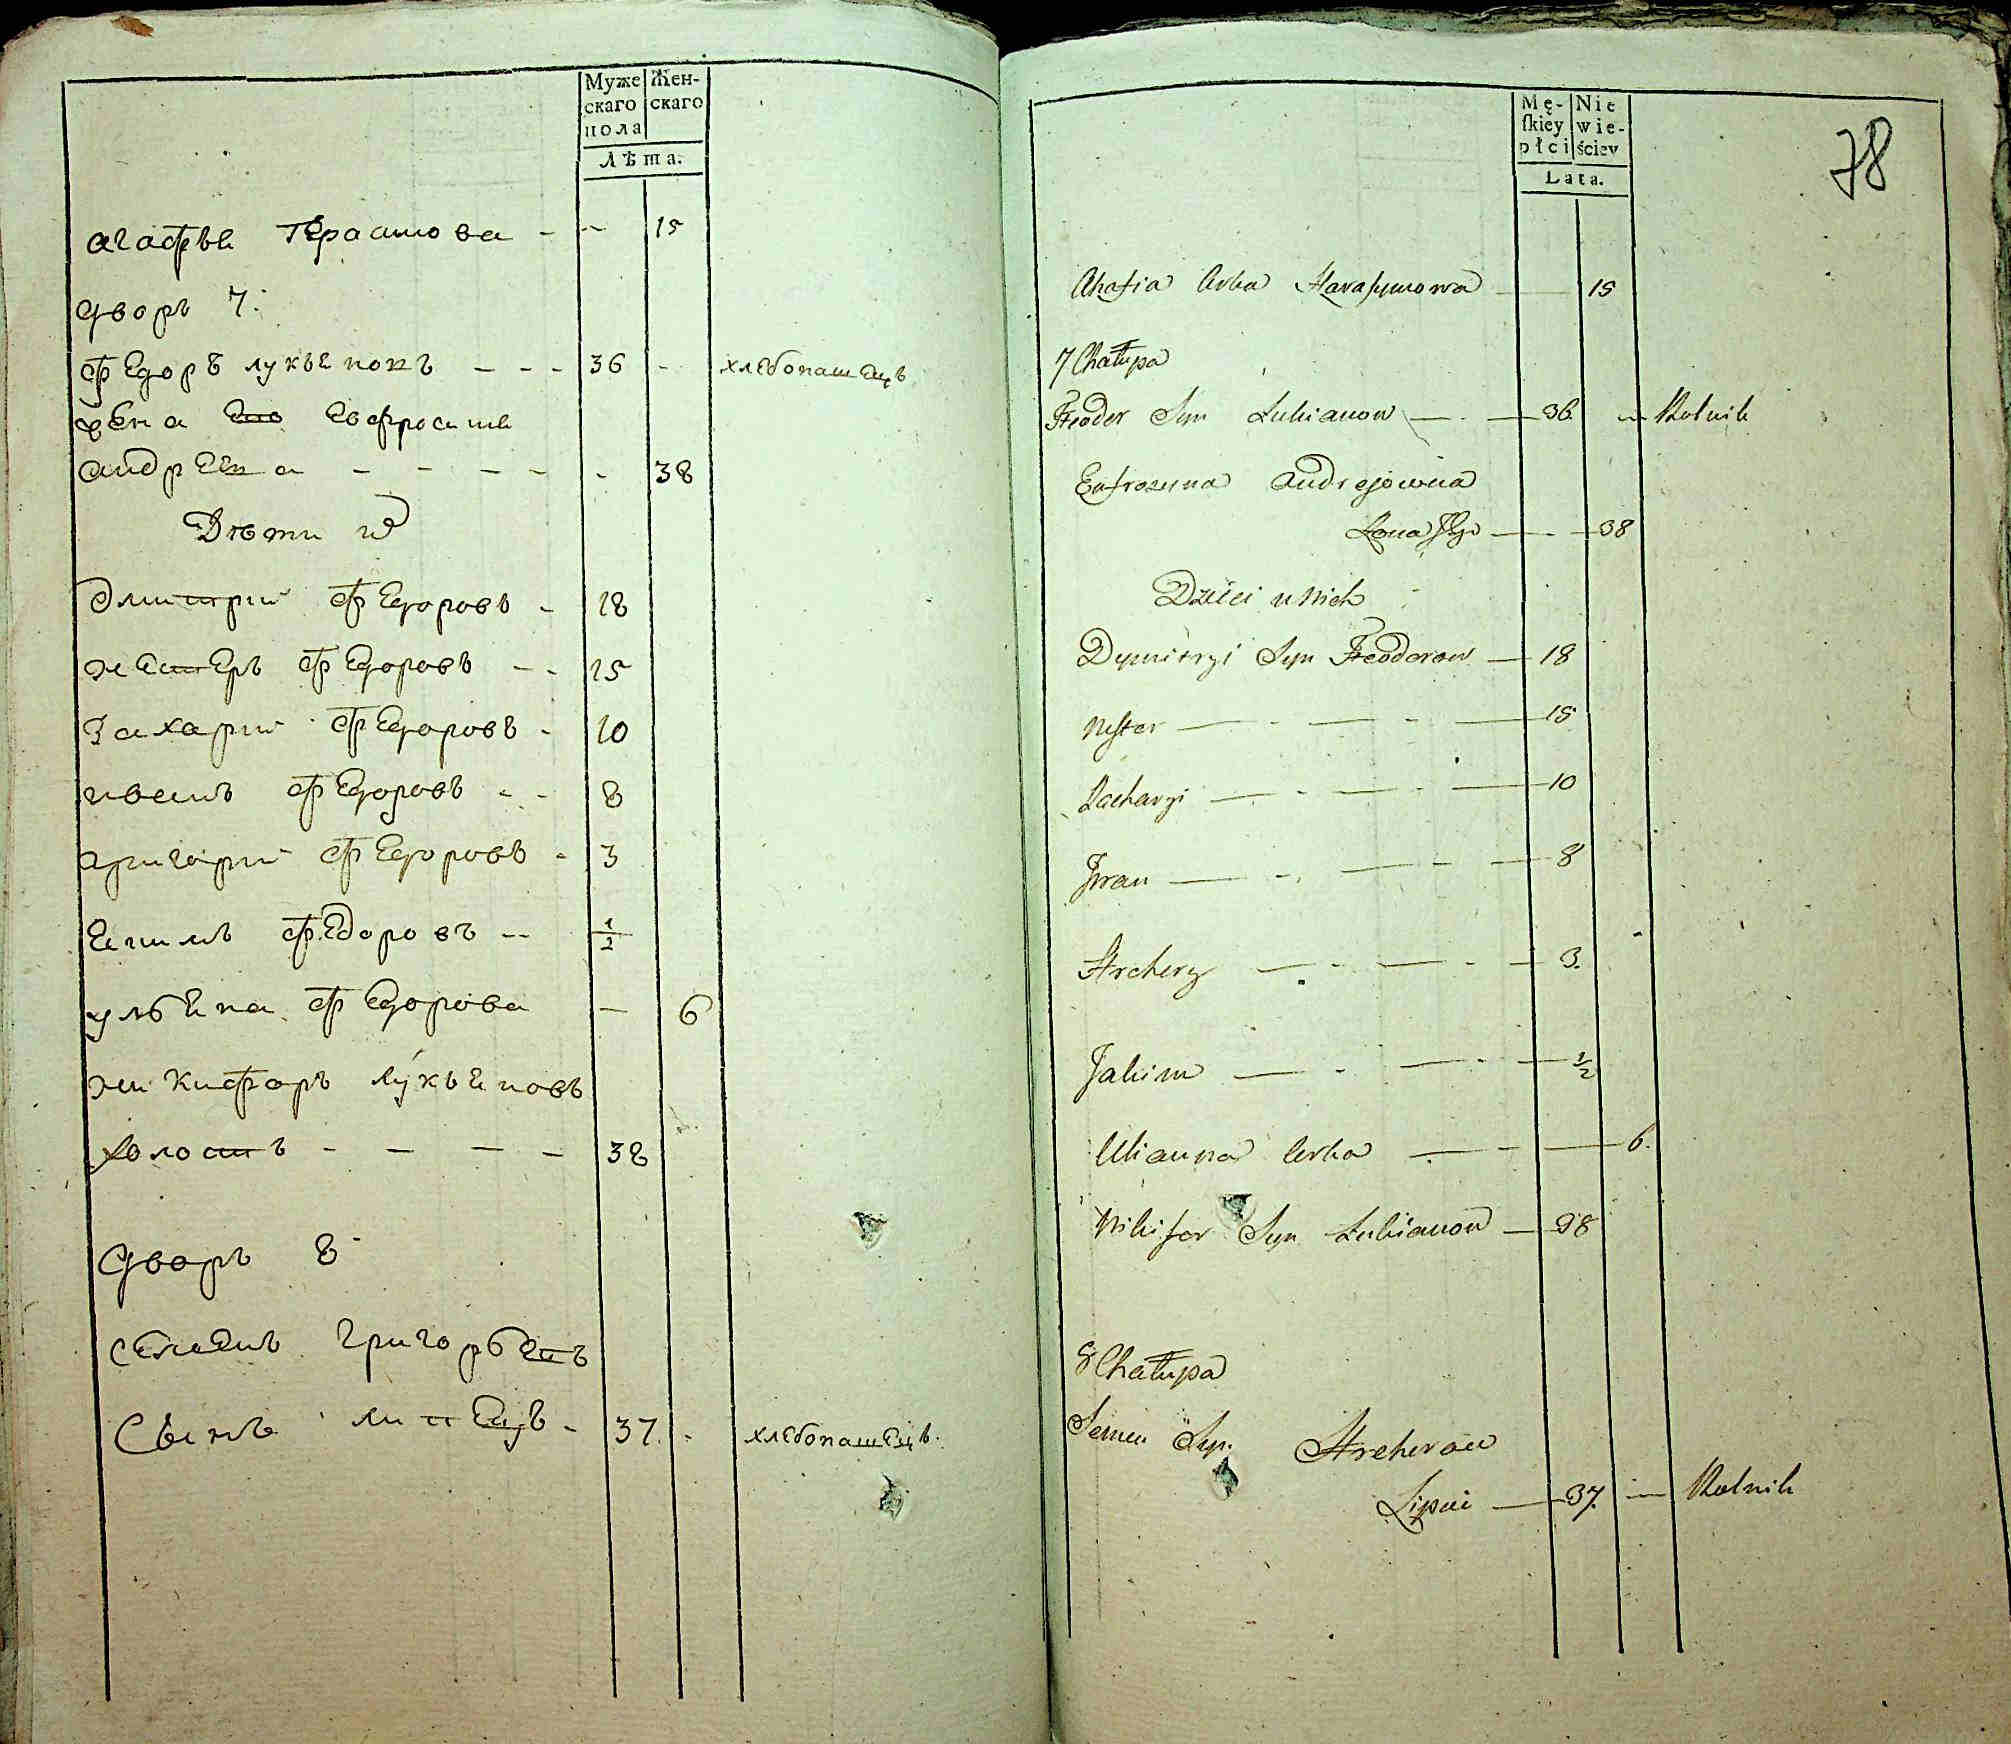 Муже Жен-
скаго скаго
пола
Лѣта.
агафья Герасимова - -- 15
дворъ 7.
Федоръ лукьянонъ - - - 36 - хлебопашецъ
жена Его Евфросинья
андреева - - - - - 38
Дѣти их
Дмитрий Федоровъ - 18
нестеръ Федоровъ - - 15
Захарий Федоровъ - 10
иванъ Федоровъ - - 8
григорий Федоровъ - 3
Екимъ Федоровъ -- 1/2
ульяна Федорова — 6
никифоръ лукьяновъ
холостъ - - - - 38
Дворъ 8
Семенъ григорьевъ
Сынъ липецъ - 37 - хлебопашецъ
Mę- Nie
ſkiey wie-
płci ściey
Lata.
78
Ahafia Corka Harasymowa — 15
7 Chałupa
Fteodor Syn Lukianow — - — 36 — Rolnik
Eufrozyna Andrejowna
Zona Jego — - — 38
Dzieci u Nich
Dymitryi Syn Fteodorow — 18
Nester — - — - — 15
Zacharyi — - — - — 10
Jwan — - — - — 8
Hrehory — - — - — 3.
Jakim — - — - — 1/2
Ulianna Corka — - — 6.
Nikifor Syn Lukianow — 38
8 Chałupa
Semen Syn Hrehorow
Lipiei — 37. — Rolnik